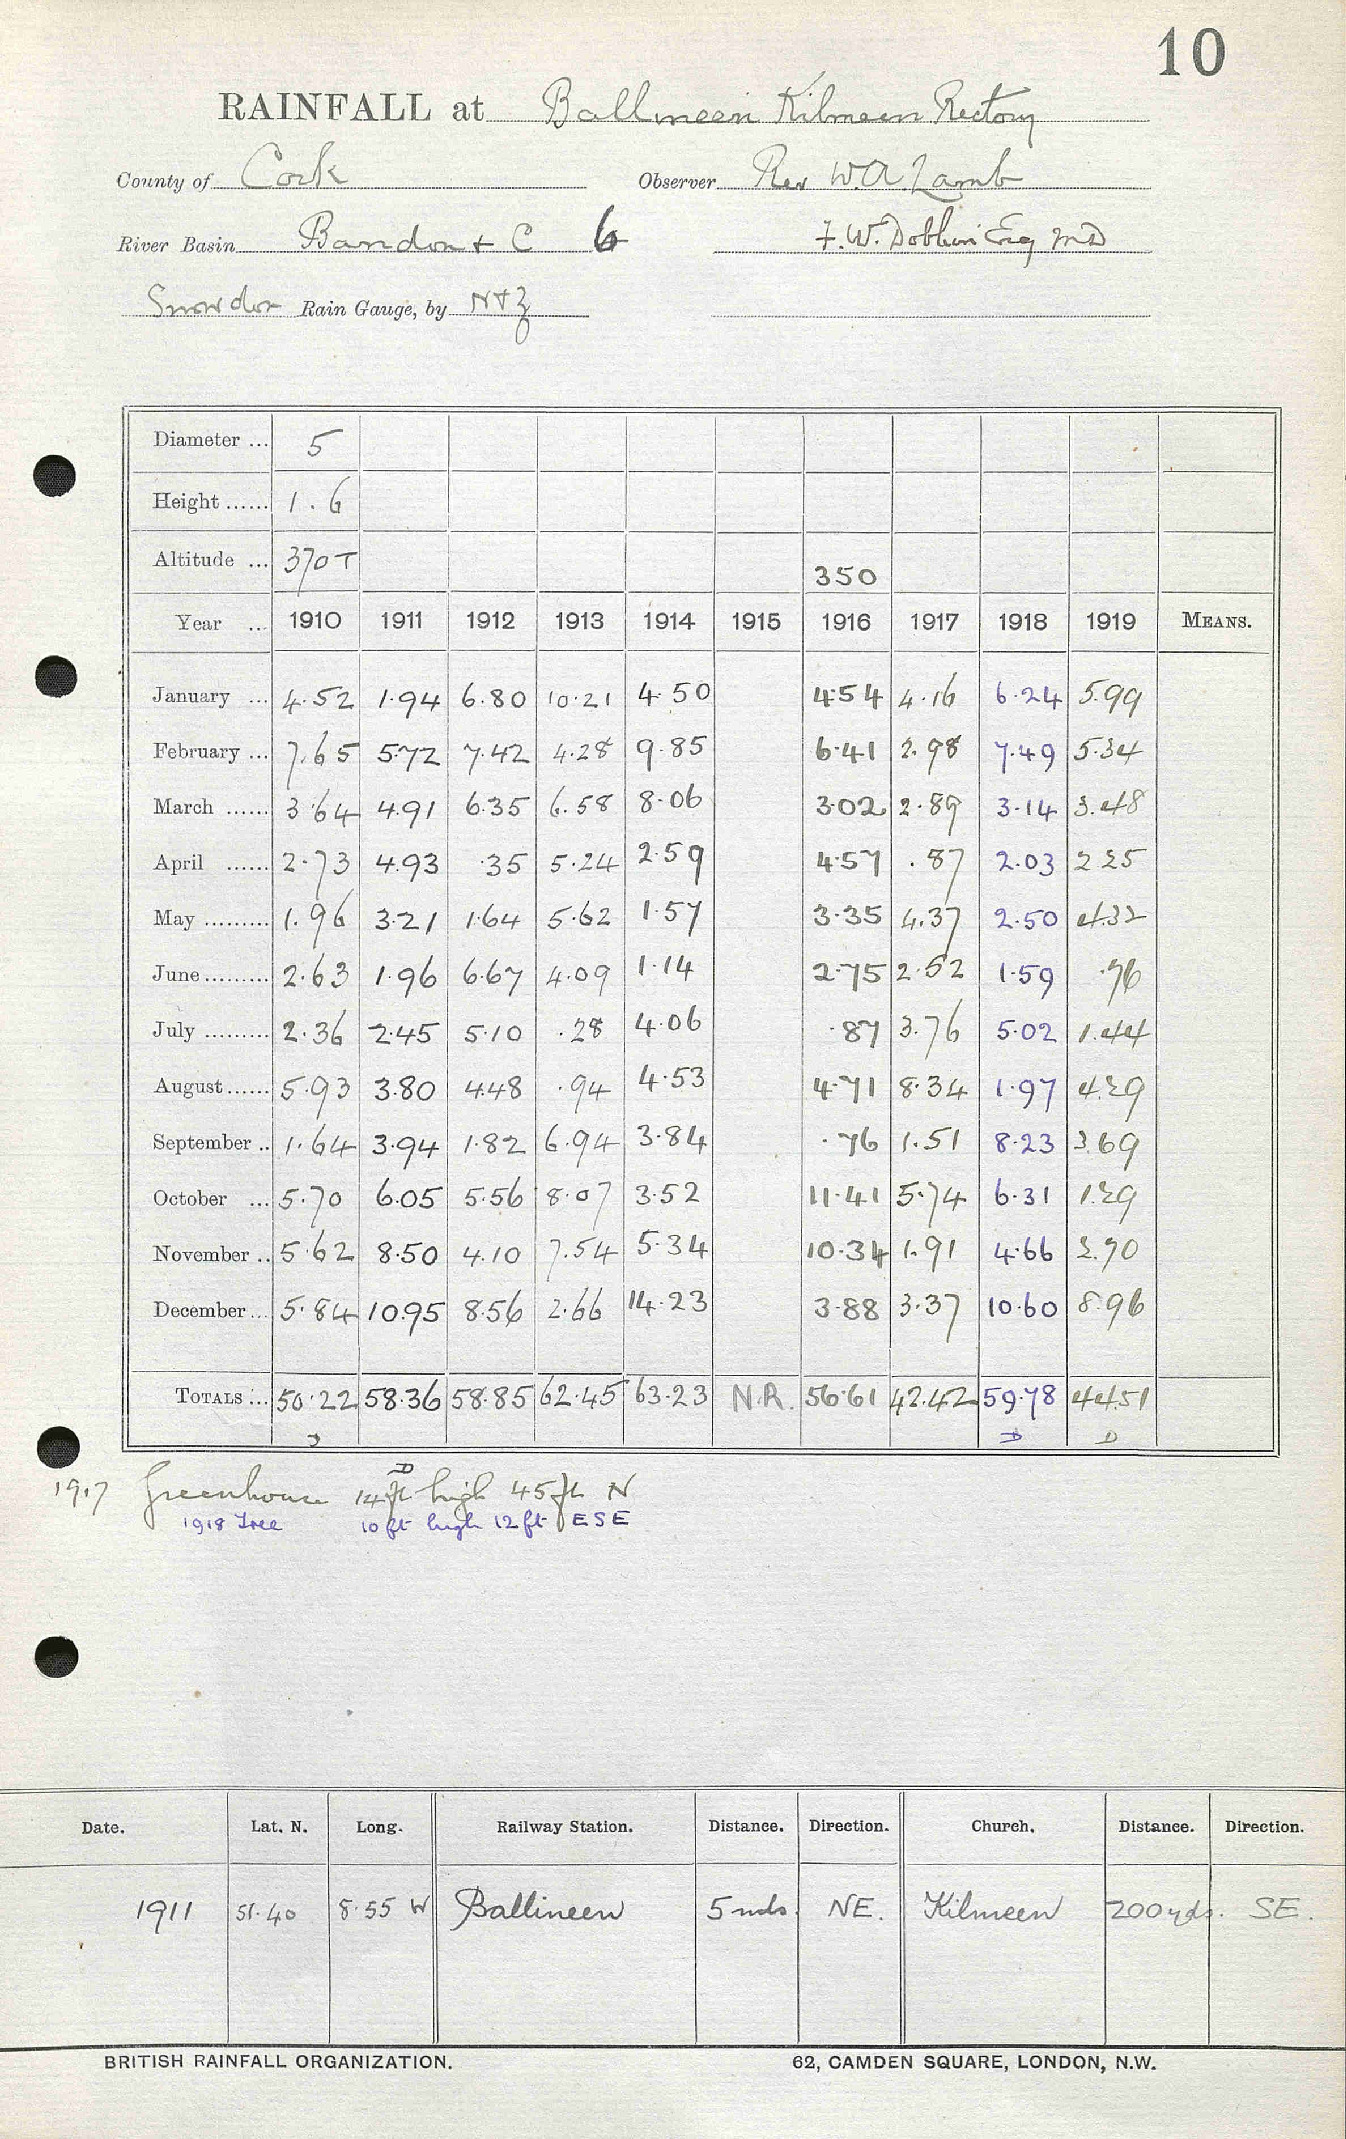 10
RAINFALL at Ballineen Kilmeen Rectory
County of Cork Observer Rev W.A. Lamb
River Basin Bandon + C 6 F.W. Dobbin Esq MD
Snowdon Rain Gauge, by N+Z
Diameter ... 5
Height ...... 1.6
Altitude ... 370T 350
Year ... 1910 1911 1912 1913 1914 1915 1916 1917 1918 1919 MEANS.
January ... 4.52 1.94 6.80 10.21 4.50 4.54 4.16 6.24 5.99
February ... 7.65 5.72 7.42 4.28 9.85 6.41 2.98 7.49 5.34
March ...... 3.64 4.91 6.35 6.58 8.06 3.02 2.89 3.14 3.48
April ...... 2.73 4.93 .35 5.24 2.59 4.57 .87 2.03 2.25
May ......... 1.96 3.21 1.64 5.62 1.57 3.35 4.37 2.50 4.32
June ......... 2.63 1.96 6.67 4.09 1.14 2.75 2.52 1.59 .76
July ......... 2.36 2.45 5.10 .28 4.06 .87 3.76 5.02 1.44
August ...... 5.93 3.80 4.48 .94 4.53 4.71 8.34 1.97 4.29
September .. 1.64 3.94 1.82 6.94 3.84 .76 1.51 8.23 3.69
October ... 5.70 6.05 5.56 8.07 3.52 11.41 5.74 6.31 1.29
November .. 5.62 8.50 4.10 7.54 5.34 10.34 1.91 4.66 2.70
December ... 5.84 10.95 8.56 2.66 14.23 3.88 3.37 10.60 8.96
TOTALS ... 50.22 58.36 58.85 62.45 63.23 N.R. 56.61 42.42 59.78 44.51
D D D
1917 Greenhouse 14ft high 45ft N
1918 Tree 10ft high 12ft ESE
Date. Lat. N. Long. Railway Station. Distance. Direction. Church. Distance. Direction.
1911 51.40 8.55 W Ballineen 5 mls. NE. Kilmeen 200 yds. SE.
BRITISH RAINFALL ORGANIZATION. 62, CAMDEN SQUARE, LONDON, N.W.